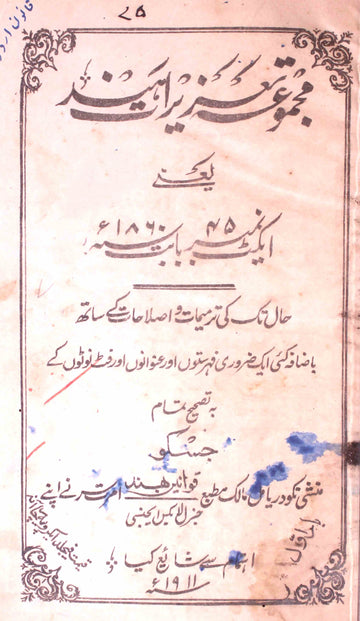 ۲۵
قانون اردو
مجموعہ تعزیرات ہند
یعنی
ایکٹ نمبر ۴۵ بابت سنہ ۱۸۶۰ء
حال تک کی ترمیمات و اصلاحات کے ساتھ
باضافہ کئی ایک ضروری فہرستوں اور عنوانوں اور فٹ نوٹوں کے
بہ تصحیح تمام
جسکو
منشی نکودریامل مالک مطبع قوانین ہند امرتسر نے اپنے
جنرل لا بکس ایجنسی
اہتمام سے شائع کیا
بار اول
سنہ ۱۹۱۱ء